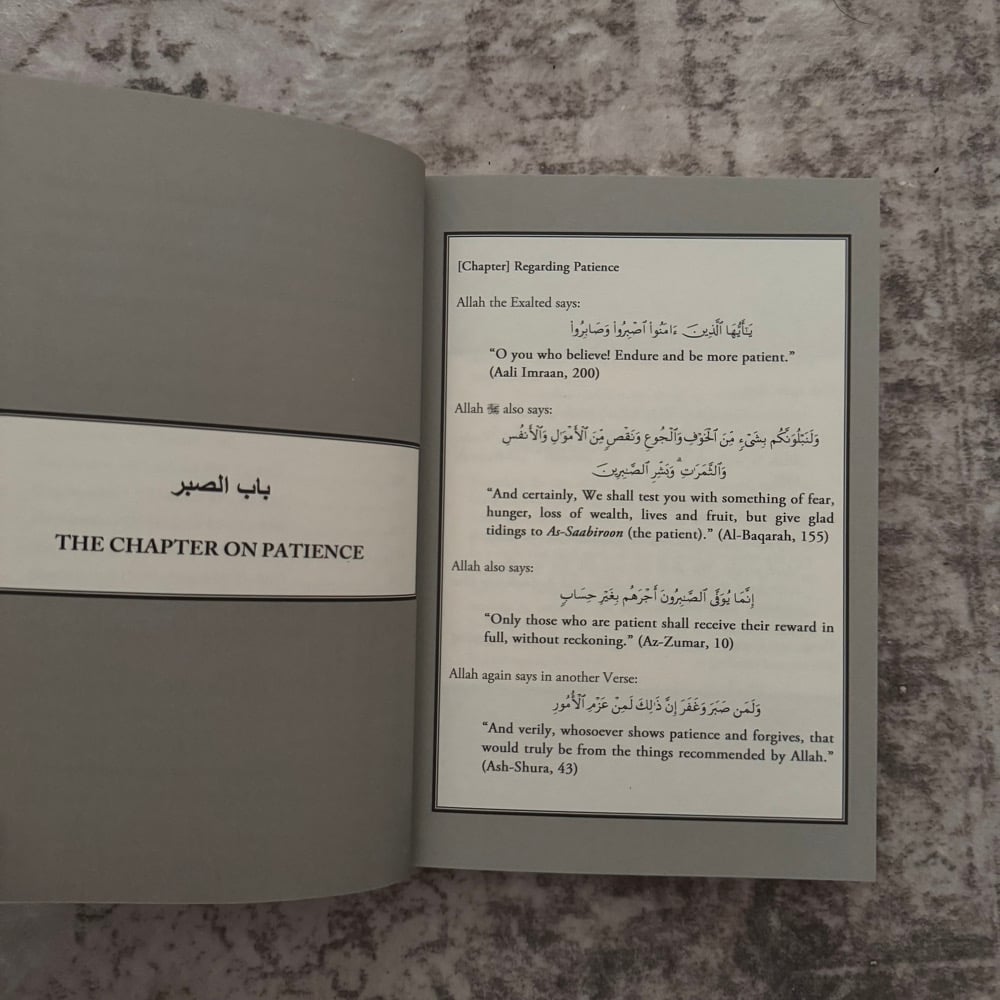 باب الصبر
THE CHAPTER ON PATIENCE
[Chapter] Regarding Patience
Allah the Exalted says:
يَـٰٓأَيُّهَا ٱلَّذِينَ ءَامَنُوا۟ ٱصْبِرُوا۟ وَصَابِرُوا۟
“O you who believe! Endure and be more patient.”
(Aali Imraan, 200)
Allah ﷻ also says:
وَلَنَبْلُوَنَّكُم بِشَىْءٍ مِّنَ ٱلْخَوْفِ وَٱلْجُوعِ وَنَقْصٍ مِّنَ ٱلْأَمْوَٰلِ وَٱلْأَنفُسِ
وَٱلثَّمَرَٰتِ ۗ وَبَشِّرِ ٱلصَّـٰبِرِينَ
“And certainly, We shall test you with something of fear,
hunger, loss of wealth, lives and fruit, but give glad
tidings to As-Saabiroon (the patient).” (Al-Baqarah, 155)
Allah also says:
إِنَّمَا يُوَفَّى ٱلصَّـٰبِرُونَ أَجْرَهُم بِغَيْرِ حِسَابٍ
“Only those who are patient shall receive their reward in
full, without reckoning.” (Az-Zumar, 10)
Allah again says in another Verse:
وَلَمَن صَبَرَ وَغَفَرَ إِنَّ ذَٰلِكَ لَمِنْ عَزْمِ ٱلْأُمُورِ
“And verily, whosoever shows patience and forgives, that
would truly be from the things recommended by Allah.”
(Ash-Shura, 43)